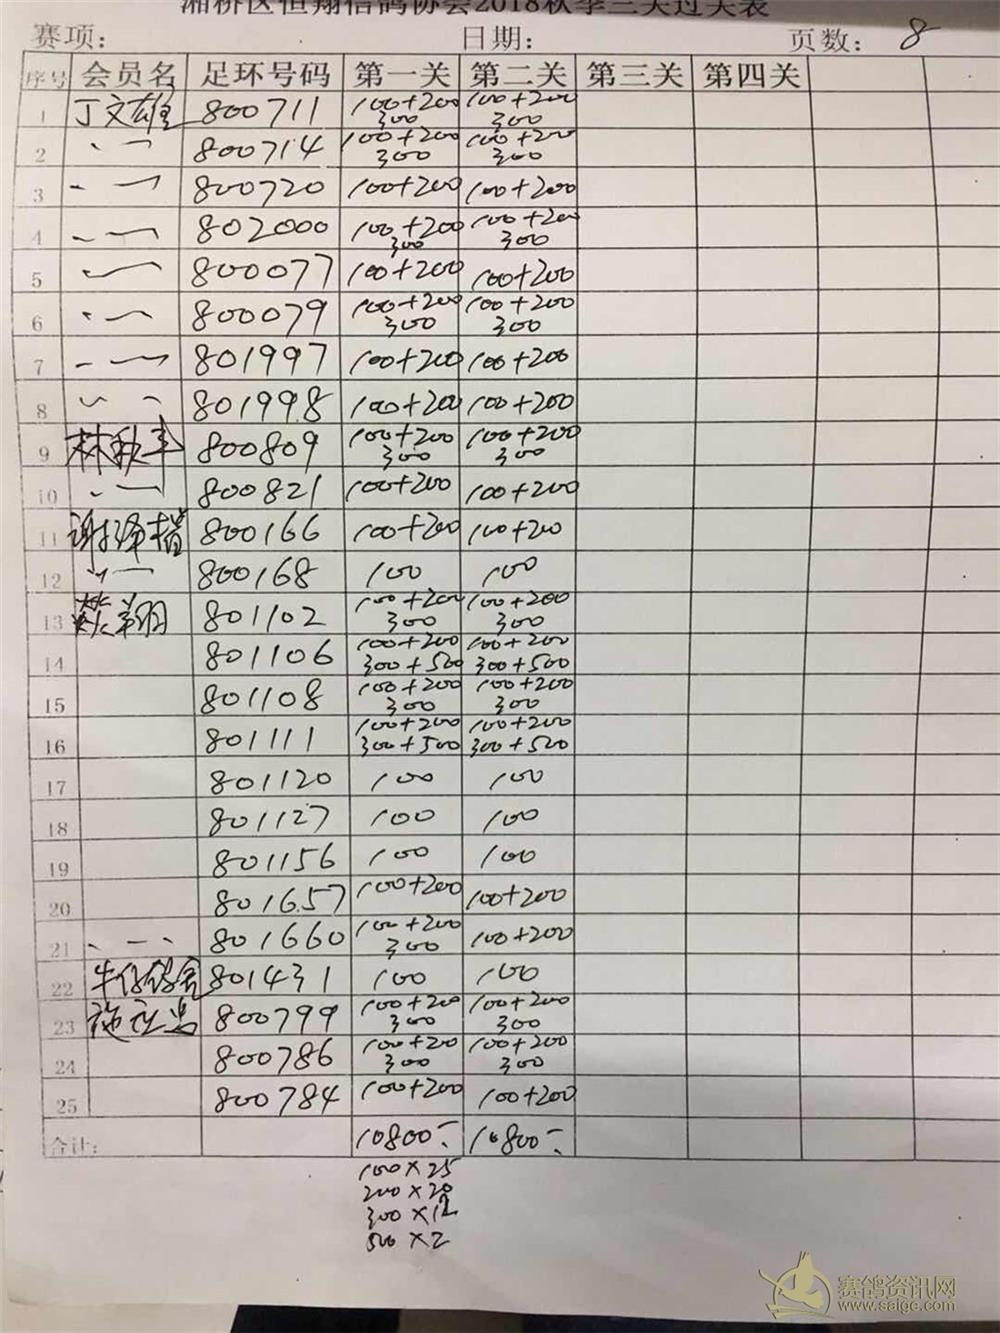 湘桥区恒翔信鸽协会2018秋季三关过关表
赛项： 日期： 页数： 8
序号 会员名 足环号码 第一关 第二关 第三关 第四关
1 丁文雄 800711 100+200 300 100+200 300
2 、一 800714 100+200 300 100+200 300
3 、一 800720 100+200 100+200
4 、一 802000 100+200 300 100+200 300
5 、一 800077 100+200 100+200
6 、一 800079 100+200 300 100+200 300
7 、一 801997 100+200 100+200
8 、、 801998 100+200 100+200
9 林秋丰 800809 100+200 300 100+200 300
10 、一 800821 100+200 100+200
11 谢泽楷 800166 100+200 100+200
12 、一 800168 100 100
13 蔡翔 801102 100+200 300 100+200 300
14 801106 100+200 300+500 100+200 300+500
15 801108 100+200 300 100+200 300
16 801111 100+200 300+500 100+200 300+500
17 801120 100 100
18 801127 100 100
19 801156 100 100
20 801657 100+200 100+200
21 、一、 801660 100+200 300 100+200
22 牛仔鸽舍 801431 100 100
23 施 800799 100+200 300 100+200 300
24 800786 100+200 300 100+200 300
25 800784 100+200 100+200
合计： 10800 10800
100×25
200×20
300×12
500×2
赛鸽资讯网
www.saige.com